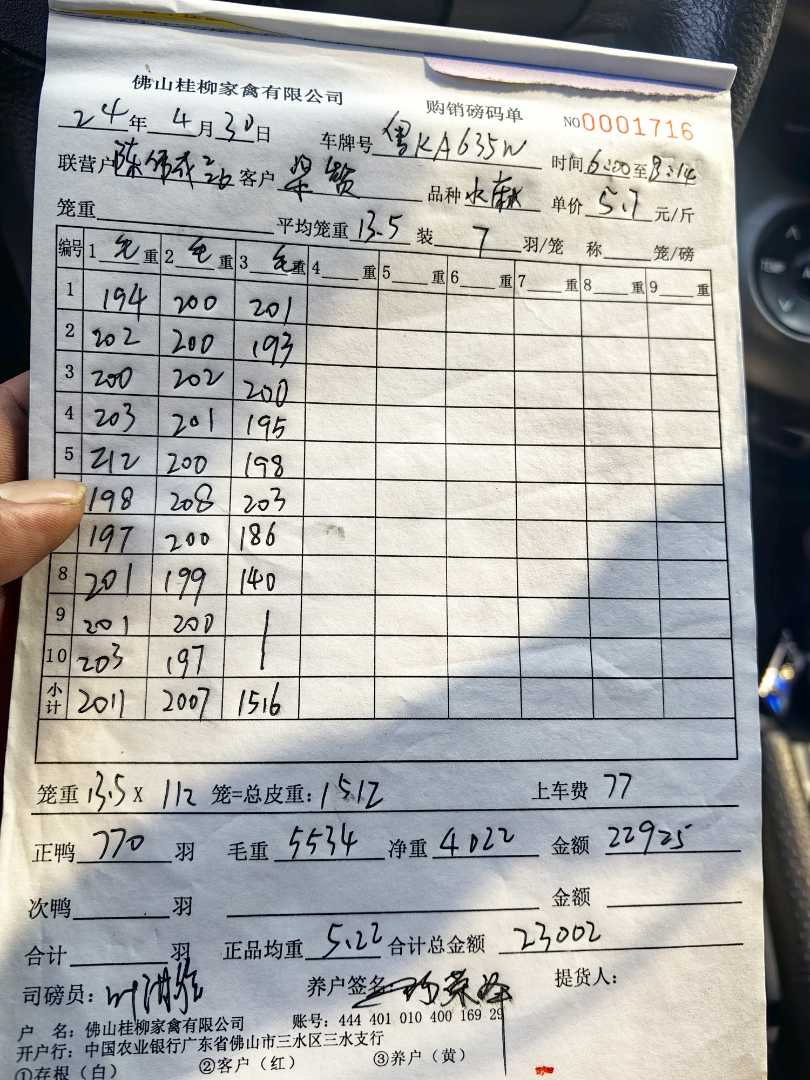 佛山桂柳家禽有限公司 购销磅码单 NO0001716
24年4月30日 车牌号粤KA635W 时间6:00至8:14
联营户陈伟成226 客户梁 品种水麻 单价5.7元/斤
笼重 平均笼重13.5 装7羽/笼 称 笼/磅
编号 1毛重 2毛重 3毛重 4 重 5 重 6 重 7 重 8 重 9 重
1 194 200 201
2 202 200 193
3 200 202 200
4 203 201 195
5 212 200 198
198 208 203
197 200 186
8 201 199 140
9 201 200 /
10 203 197
小计 2011 2007 1516
笼重13.5X112笼=总皮重:1512 上车费77
正鸭770羽 毛重5534 净重4022 金额22925
次鸭 羽 金额
合计 羽 正品均重5.22 合计总金额23002
司磅员:叶 养户签名: 提货人:
户 名:佛山桂柳家禽有限公司 账号:444 401 010 400 169 29
开户行:中国农业银行广东省佛山市三水区三水支行
①存根(白) ②客户(红) ③养户(黄)